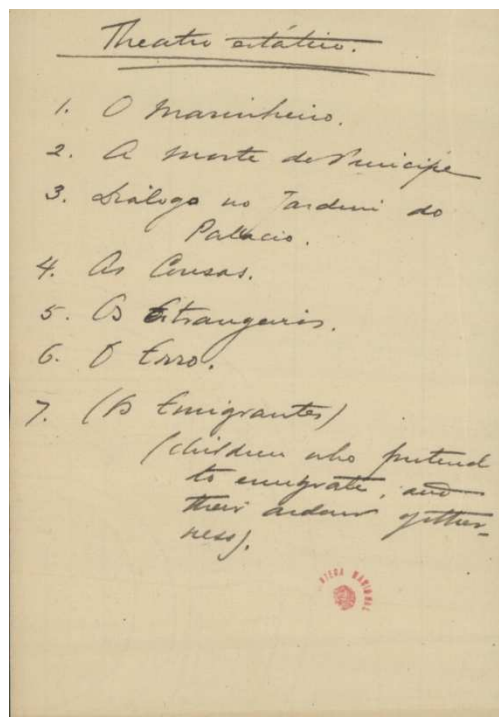 Theatro estático.
1. O Marinheiro.
2. A morte do Principe
3. Diálogo no Jardim do
Palacio.
4. As Cousas.
5. Os Estrangeiros.
6. O Erro.
7. (Os Emigrantes)
(children who pretend
to emigrate, and
their ardour
ness).
OTECA NACIONAL